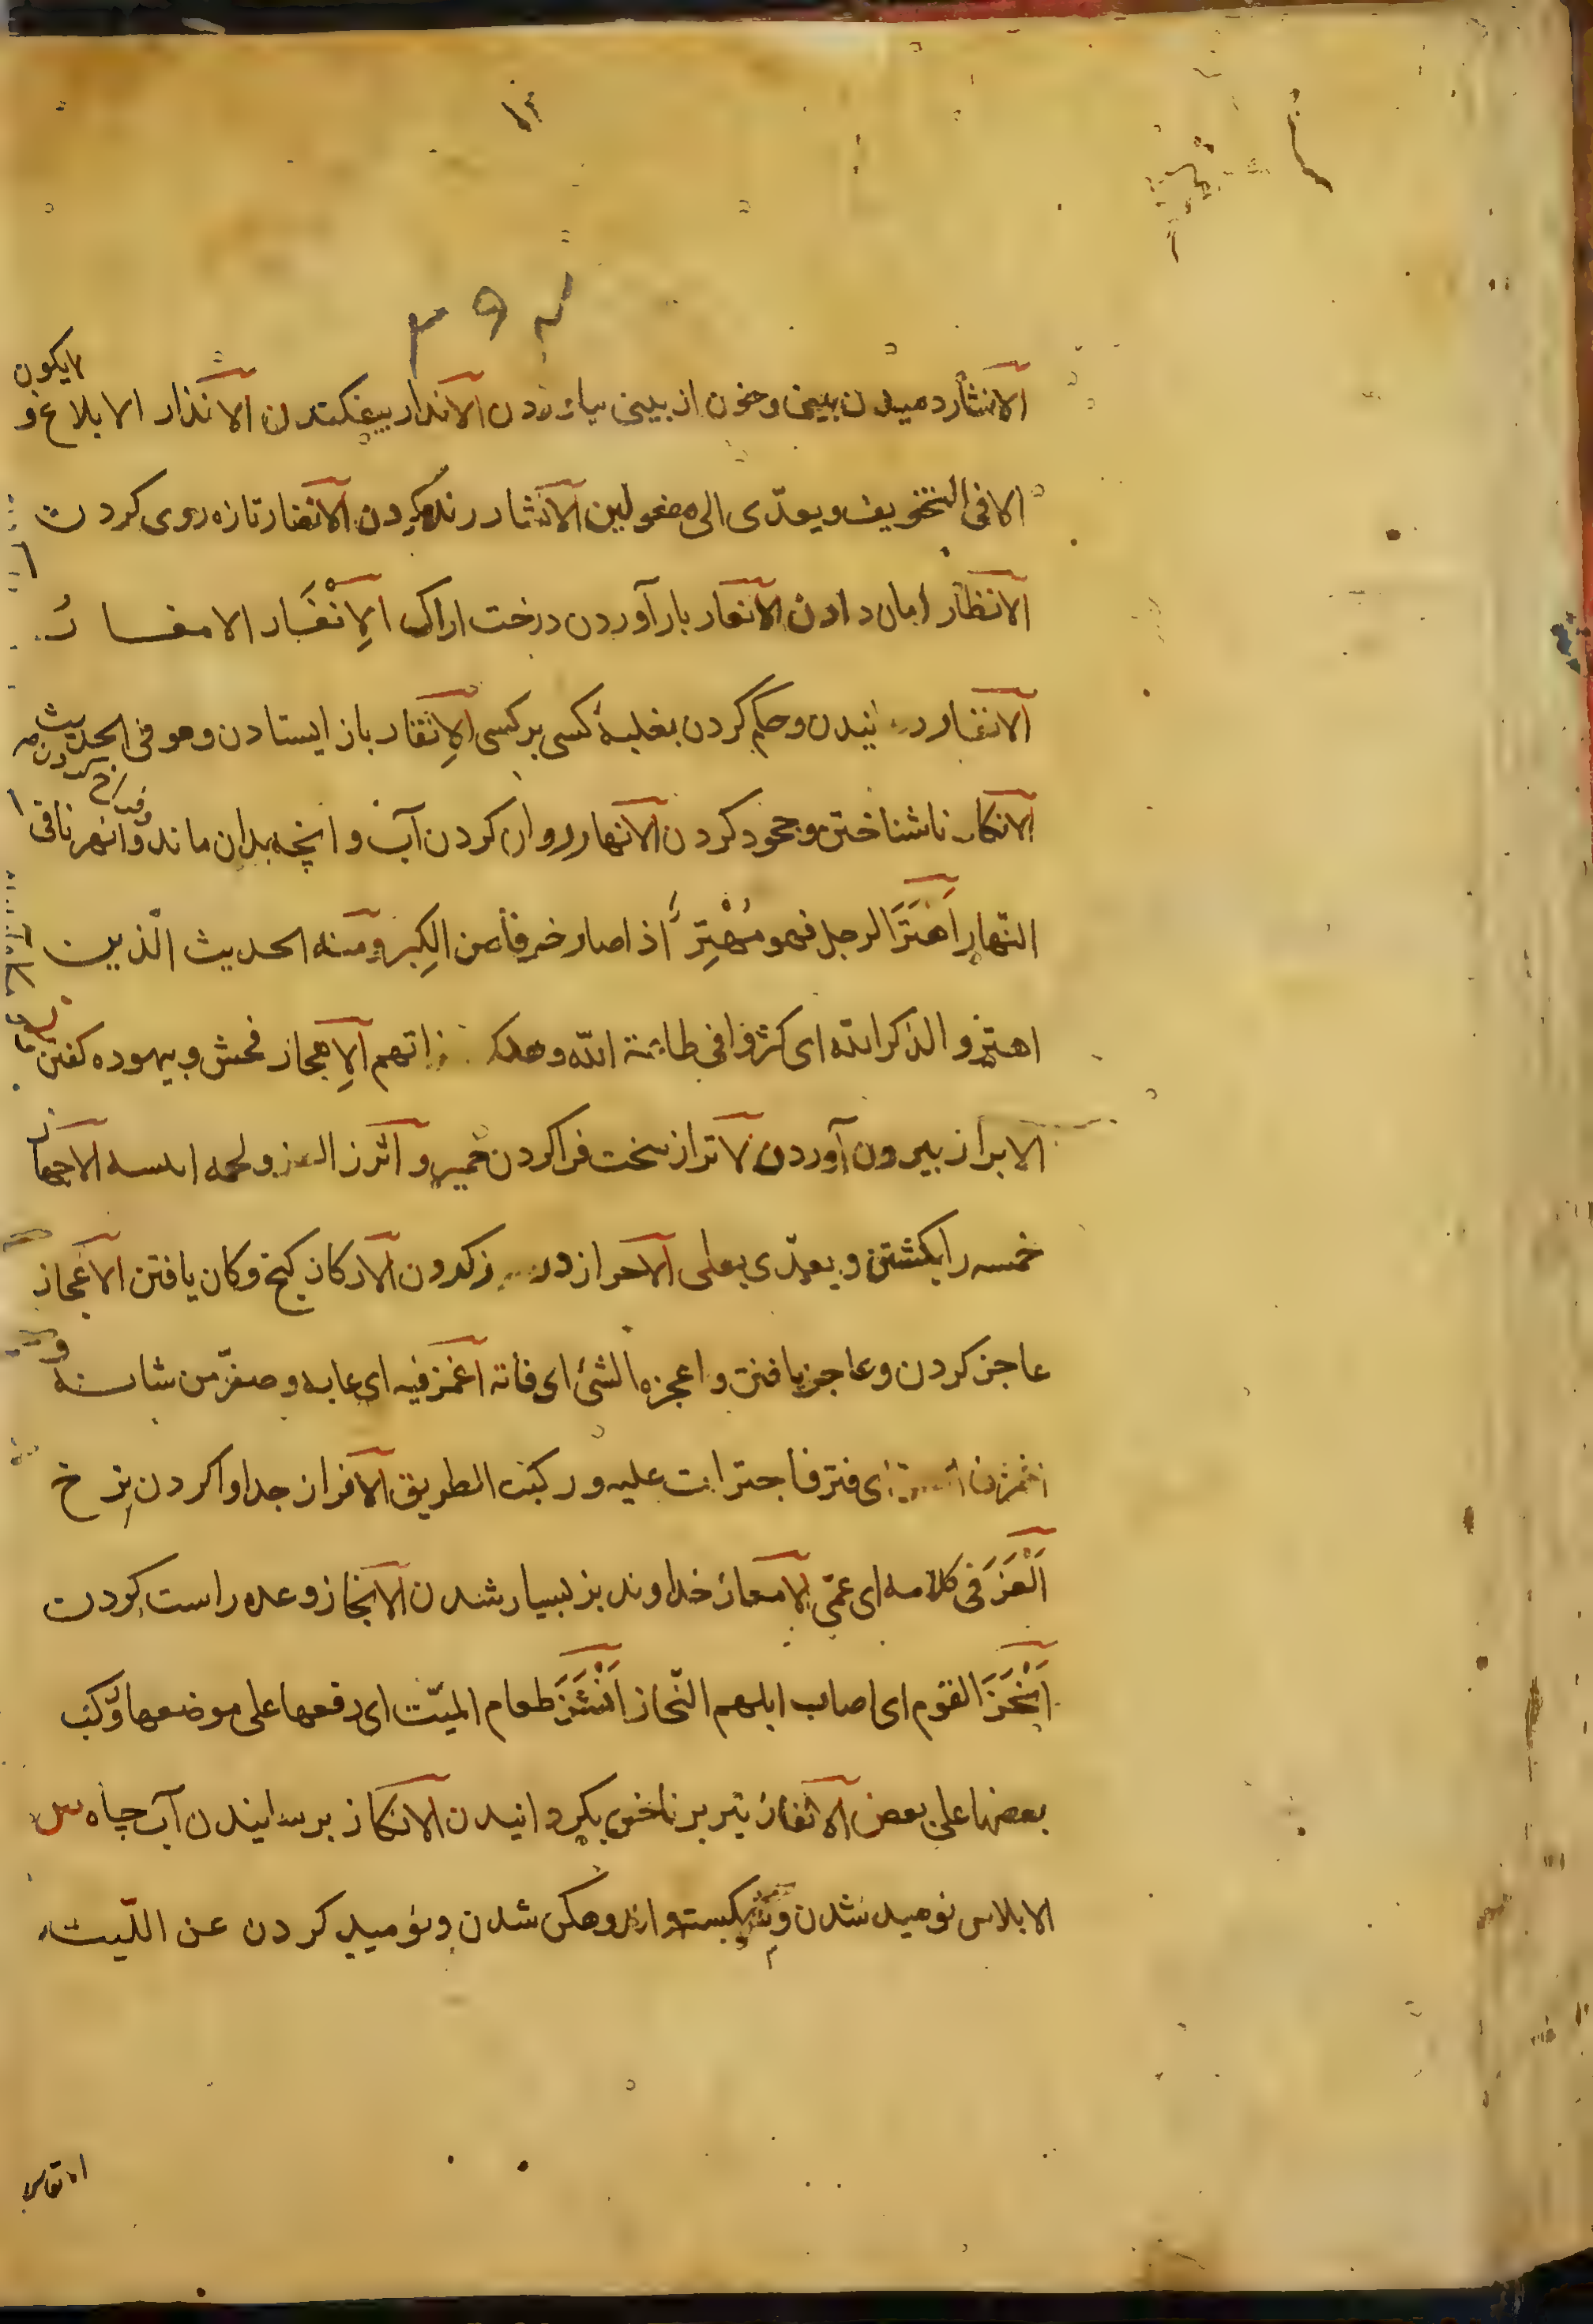 ۳۹۲
لایکون
الانثار دمیدن بینی و خون از بینی بیارزدن الاندار بیفکندن الانذار الابلاغ و
الا فی التخویف و یعدّی الی مفعولین الانشار زنده کردن الانضار تازه روی کردن
الانظار امان دادن الانعار بار آوردن درخت اراک الاِنْغَار الامغار
الانفار نیدن و حکم کردن بغلبهٔ کسی بر کسی الاِنقار باز ایستادن و هو فی الحدیث
الانکار ناشناختن و جحود کردن الانهار روان کردن آب و انچه بدان ماند و انهرنا فی
النّهار اَهْتَرَ الرجل فهو مُهْتِرٌ اذا صار خرفا من الکِبَر و منه الحدیث الّذین
اهتروا لذکر الله ای کثروا فی طاعة الله و هلک الاِهجار فحش و بیهوده کفتن
الابراز بیرون آوردن الاتراز سخت فرا کردن خمیر و اترز و لحمه الاجهاز
خسته را بکشتن و یعدّی بعلی الاحراز کردن الارکاز کنج و کان یافتن الاعجاز
عاجز کردن و عاجز یافتن و اعجزه الشئ ای فاته اغمز فیه ای عابه و صغّر من شانه
ای فتر فاجترات علیه و رکبت الطریق الافراز جدا وا کردن
اَلْغَزَ فی کلامه ای عمّی الامعاز خداوند بز بسیار شدن الانجاز وعده راست کردن
اَنْحَزَ القوم ای اصاب ابلهم النّحاز اَنْشَزَ طعام المیّت ای رفعها علی موضعها و رکب
بعضها علی بعض الانفاز تیر بر ناخن بکردانیدن الانکاز برسانیدن آب چاه س
الابلاس نومید شدن و شکسته و اندوهکن شدن و نومید کردن عن اللّیث